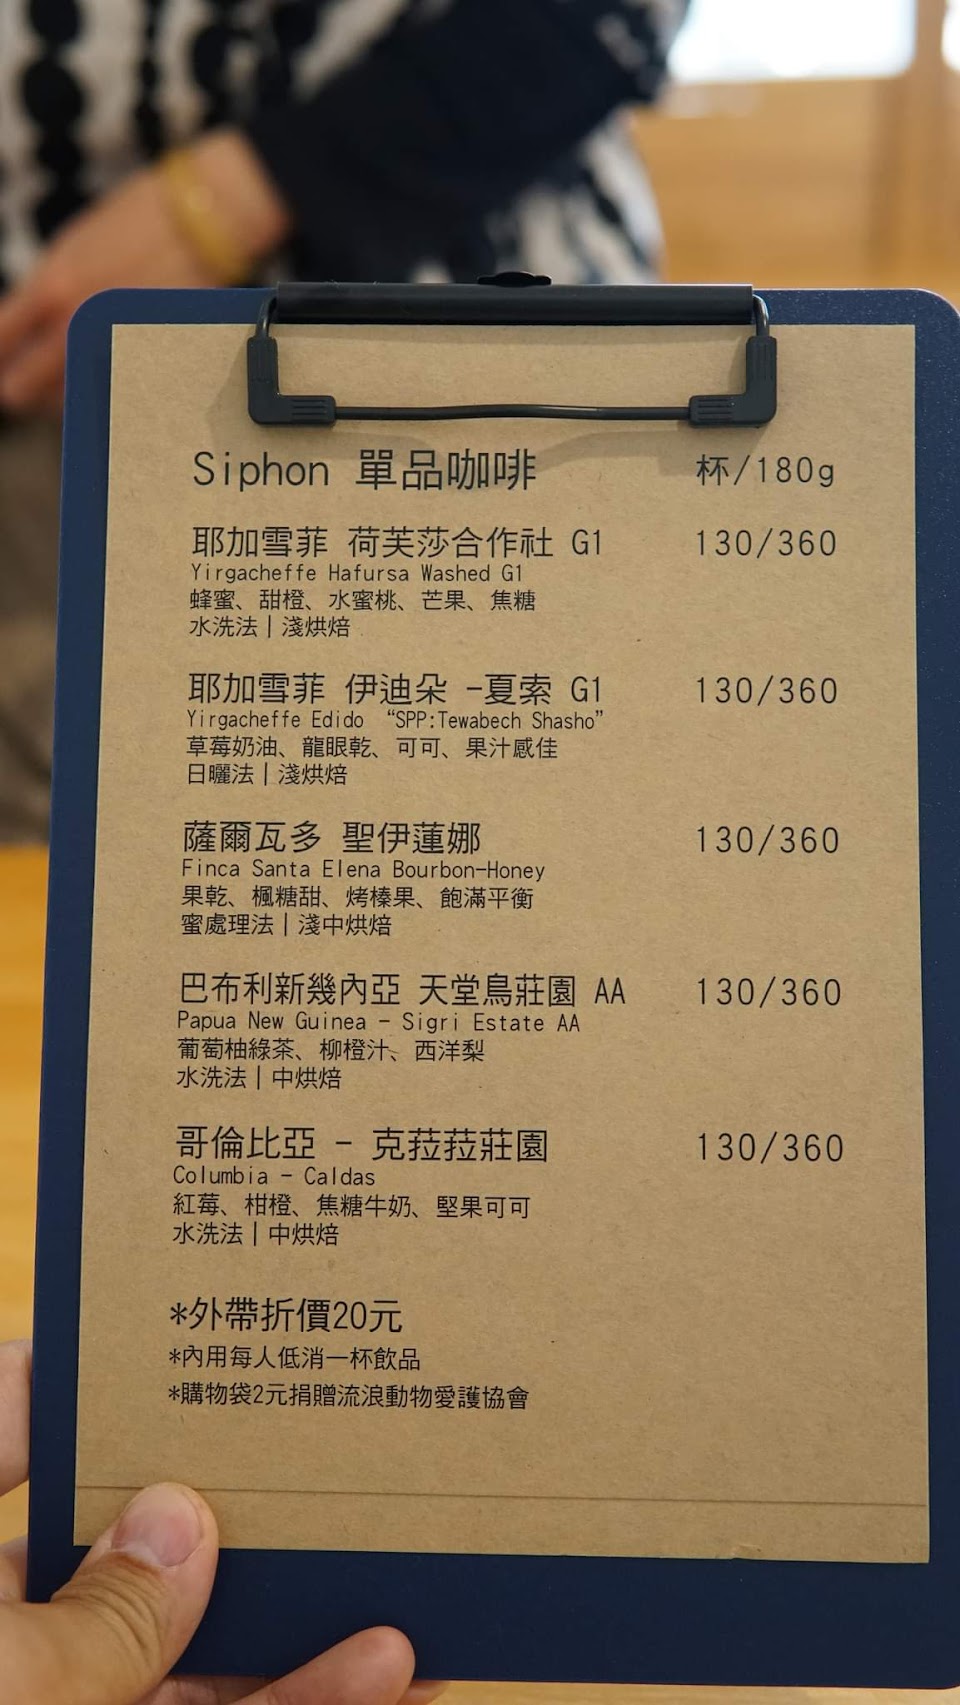 Siphon 單品咖啡 杯/180g
耶加雪菲 荷芙莎合作社 G1 130/360
Yirgacheffe Hafursa Washed G1
蜂蜜、甜橙、水蜜桃、芒果、焦糖
水洗法|淺烘焙
耶加雪菲 伊迪朵 -夏索 G1 130/360
Yirgacheffe Edido “SPP:Tewabech Shasho”
草莓奶油、龍眼乾、可可、果汁感佳
日曬法|淺烘焙
薩爾瓦多 聖伊蓮娜 130/360
Finca Santa Elena Bourbon-Honey
果乾、楓糖甜、烤榛果、飽滿平衡
蜜處理法|淺中烘焙
巴布利新幾內亞 天堂鳥莊園 AA 130/360
Papua New Guinea - Sigri Estate AA
葡萄柚綠茶、柳橙汁、西洋梨
水洗法|中烘焙
哥倫比亞 - 克菈菈莊園 130/360
Columbia - Caldas
紅莓、柑橙、焦糖牛奶、堅果可可
水洗法|中烘焙
*外帶折價20元
*內用每人低消一杯飲品
*購物袋2元捐贈流浪動物愛護協會